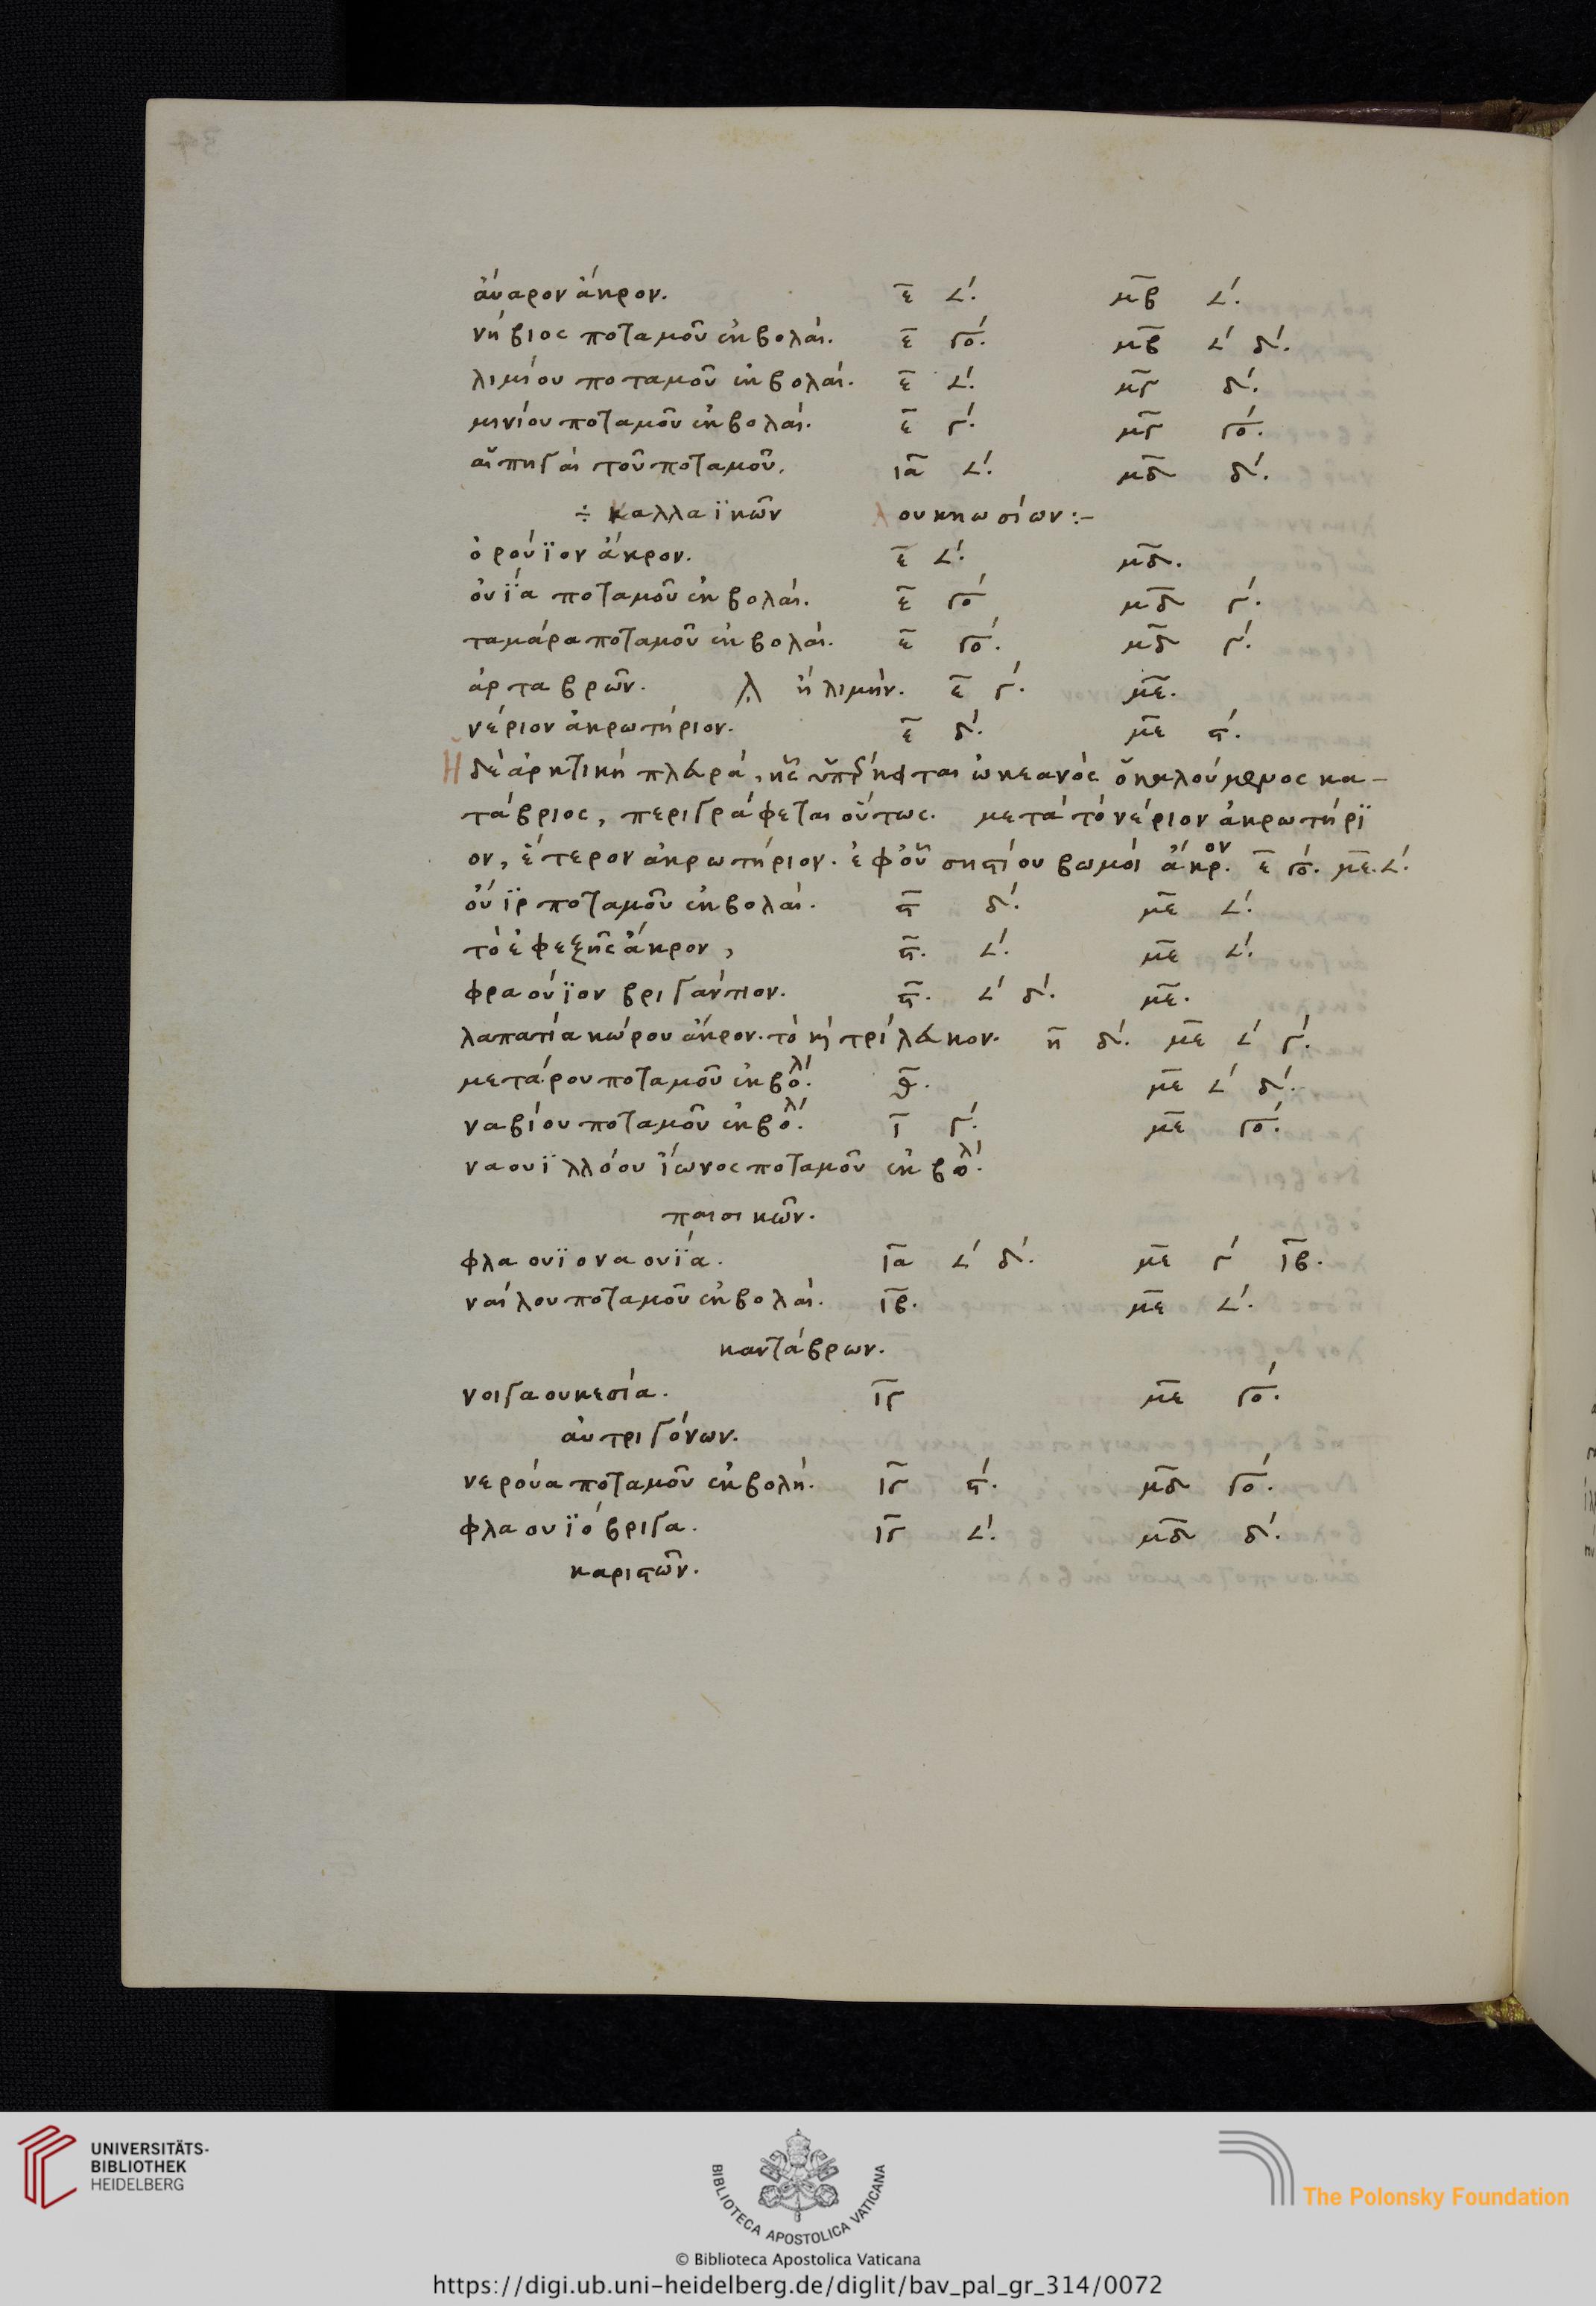 ἄυαρον ἄκρον. ε̄ 𐅵΄. μ̄β 𐅵΄.
νήβιος ποταμοῦ ἐκβολαί. ε̄ γο΄. μ̄β 𐅵΄ δ΄.
λιμίου ποταμοῦ ἐκβολαί. ε̄ 𐅵΄. μ̄γ δ΄.
μινίου ποταμοῦ ἐκβολαί. ε̄ γ΄. μ̄γ γο΄.
αἵ πηγαὶ τοῦ ποταμοῦ. ιᾱ 𐅵΄. μ̄δ δ΄.
÷ Καλλαϊκῶν Λουκηνσίων :-
ὀρούϊον ἄκρον. ε̄ 𐅵΄. μ̄δ.
ὀυΐα ποταμοῦ ἐκβολαί. ε̄ γο΄ μ̄δ γ΄.
ταμάρα ποταμοῦ ἐκβολαί. ε̄ γο΄. μ̄δ γ΄.
ἀρταβρῶν. λ ἡ λιμήν. ε̄ γ΄. μ̄ε.
νέριον ἀκρωτήριον. ε̄ δ΄. μ̄ε ϛ΄.
Ἡ δὲ ἀρκτικὴ πλευρά, ἧς ὑπέρκειται ὠκεανὸς ὁ καλούμενος κα-
τάβριος, περιγράφεται οὕτως. μετὰ τὸ νέριον ἀκρωτήρϊ
ον, ἕτερον ἀκρωτήριον. ἐφ᾽ οὗ σηστίου βωμοὶ ἄκρον. ε̄ γο΄. μ̄ε. 𐅵΄.
ὀύϊρ ποταμοῦ ἐκβολαί. ϛ̄ δ΄. μ̄ε 𐅵΄.
τὸ ἐφεξῆς ἄκρον, ϛ̄. 𐅵΄. μ̄ε 𐅵΄.
φραούϊον βριγάντιον. ϛ̄. 𐅵΄ δ΄. μ̄ε.
λαπατία κώρου ἄκρον. τὸ κὴ τρίλευκον. η̄ δ΄. μ̄ε 𐅵΄ γ΄.
μετάρου ποταμοῦ ἐκβολ΄. θ̄. μ̄ε 𐅵΄ δ΄.
ναβίου ποταμοῦ ἐκβολ΄. ῑ γ΄. μ̄ε γο΄.
ναουϊλλόου ΐωνος ποταμοῦ ἐκβολ΄.
παισικῶν.
φλαουϊοναουΐα. ῑα 𐅵΄ δ΄. μ̄ε γ΄ ῑβ.
ναίλου ποταμοῦ ἐκβολαί. ῑβ. μ̄ε 𐅵΄.
καντάβρων.
νοιγαουκεσία. ῑγ μ̄ε γο΄.
ἀυτριγόνων.
νερούα ποταμοῦ ἐκβολή. ῑγ ϛ΄. μ̄δ γο΄.
φλαουϊόβριγα. ῑγ 𐅵΄. μ̄δ δ΄.
καριστῶν.
UNIVERSITÄTS-
BIBLIOTHEK
HEIDELBERG
BIBLIOTECA APOSTOLICA VATICANA
© Biblioteca Apostolica Vaticana
The Polonsky Foundation
https://digi.ub.uni-heidelberg.de/diglit/bav_pal_gr_314/0072